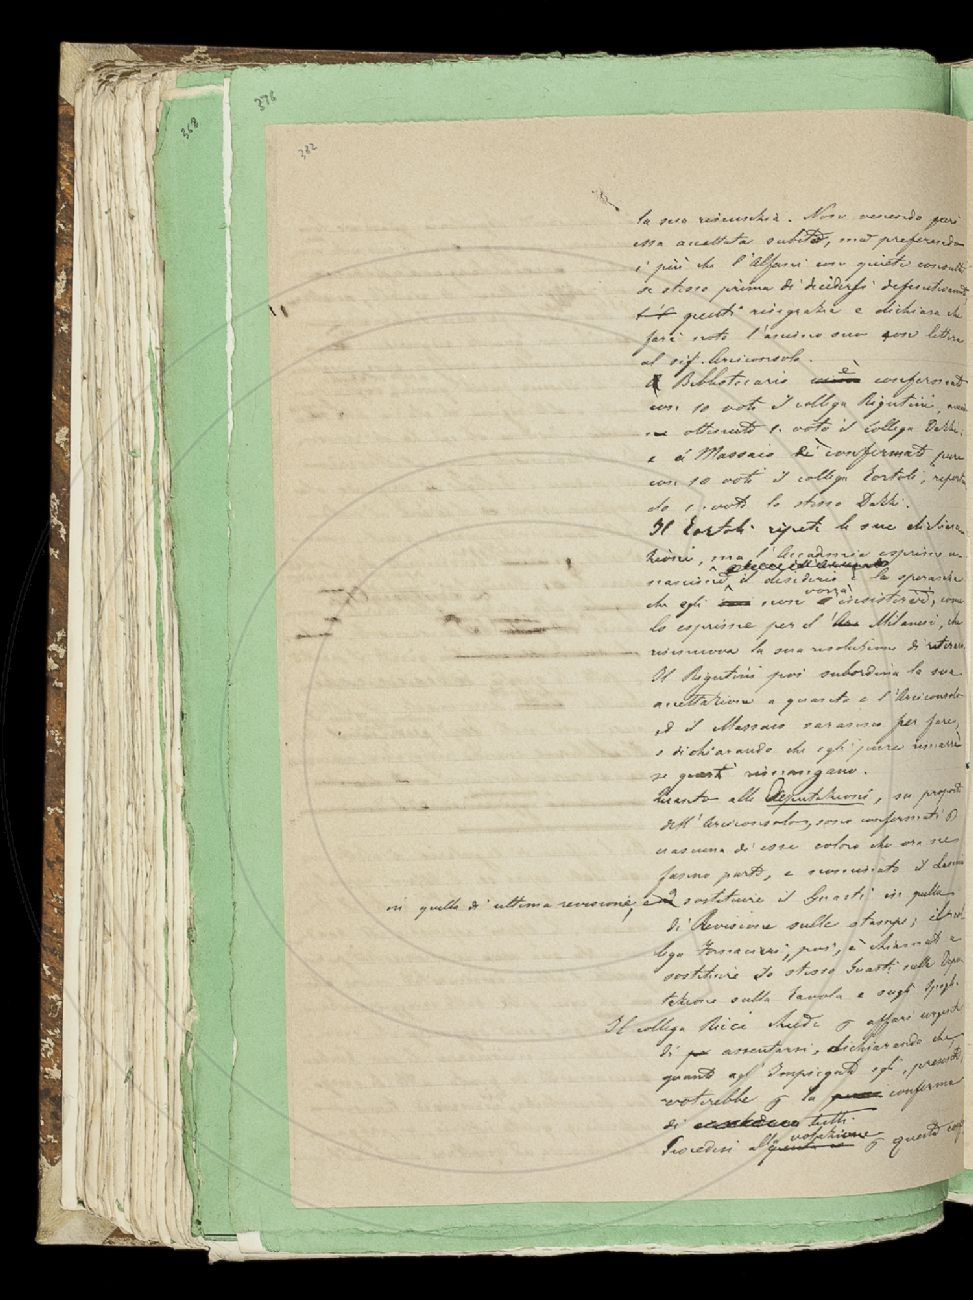 368
376
382
la sua rinunzia. Non venendo però
essa accettata subito, ma preferendo
i più che l'Alfani con quiete consulti
se stesso prima di decidersi definitivamente
questi ringrazia e dichiara che
farà noto l'animo suo con lettera
al sig. Arciconsolo.
A Bibliotecario è confermato
con 10 voti il collega Rigutini, avendo
ottenuto 1. voto il collega Dazzi.
e a Massaio è confermato pure
con 10 voti il collega Tortoli, riportan
do 1. voto lo stesso Dazzi.
Il Tortoli ripete le sue dichiara
zioni, ma l'Accademia esprime u-
nanime il desiderio e la speranza
che egli non vorrà insistere, come
lo esprime per il Milanesi, che
rinnuova la sua risoluzione di ritirarsi.
Il Rigutini poi subordina la sua
accettazione a quanto e l'Arciconsolo
ed il Massaio saranno per fare,
e dichiarando che egli pure rimarrà
se questi rimangano.
Quanto alle Deputazioni, su proposta
dell'Arciconsolo, sono confermati
ciascuna di esse coloro che ora ne
fanno parte, e nominato il
in quella di ultima revisione, e a sostituire il Guasti in quella
di Revisione sulle stampe; il col
lega Fornaciari, poi, è chiamato a
sostituire lo stesso Guasti nella Depu
tazione sulla Tavola e sugli Spogli.
Il collega Ricci chiede per affari urgenti
di assentarsi, dichiarando che,
quanto agl'Impiegati egli, presente,
voterebbe per la conferma
di tutti.
Procedesi alla votazione per questa